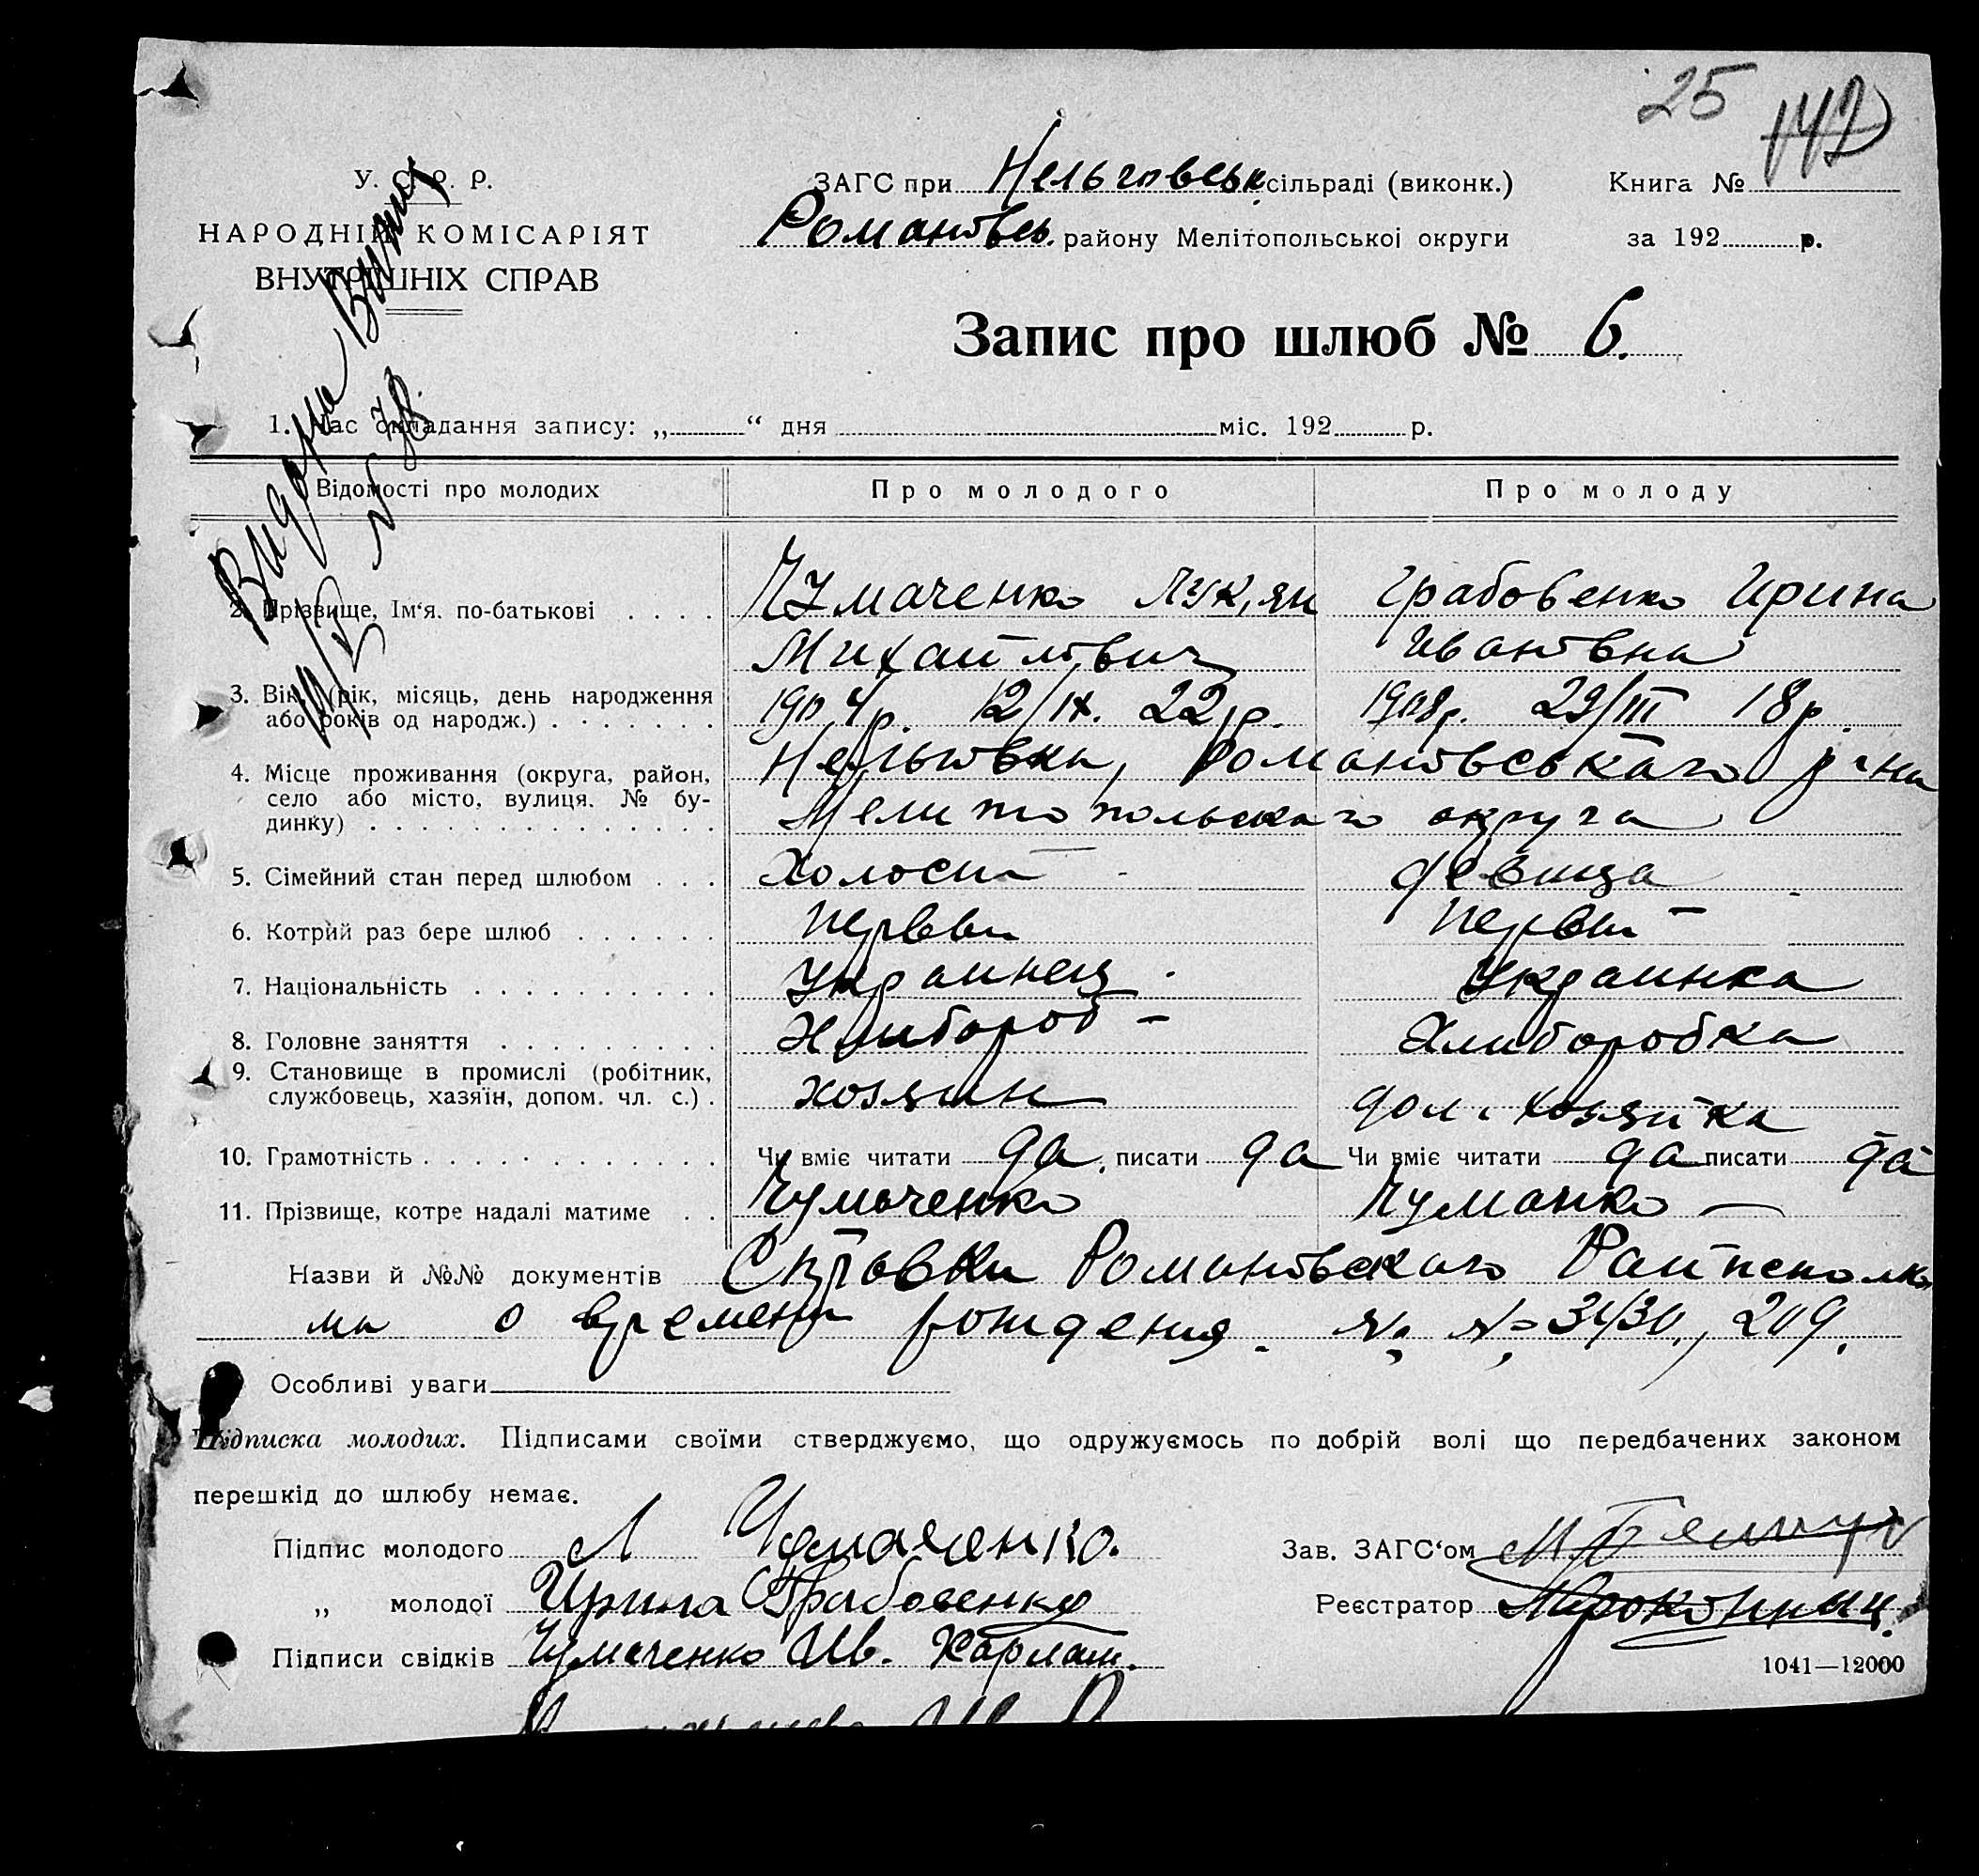 25
142
У. С. Р. Р.
НАРОДНІЙ КОМІСАРІЯТ
ВНУТРІШНІХ СПРАВ
ЗАГС при Нельговськ. сільраді (виконк.)
Книга №
Романовсь. району Мелітопольської округи
за 192 р.
Запис про шлюб № 6.
Видана Випись
№ 78.
1. Час складання запису: „ “ дня міс. 192 р.
Відомості про молодих Про молодого Про молоду
2. Прізвище, Ім‘я. по-батькові Чумаченко Лук,ян Грабовенко Ирина
Михайлович Ивановна
3. Вік. (рік, місяць, день народження
або років од народж.) 1904р. 12/IX. 22 р. 1908р. 29/III 18 р.
4. Місце проживання (округа, район,
село або місто, вулиця. № бу-
динку)
Нельговка, Романовськаго р-на
Мелитопольскаго округа
5. Сімейний стан перед шлюбом Холост девица
6. Котрий раз бере шлюб Первый Первый
7. Національність Украинец Украинка
8. Головне заняття Хлибороб - Хлиборобка
9. Становище в промислі (робітник,
службовець, хазяїн, допом. чл. с.) хозяин дом. хозяйка
10. Грамотність Чи вміє читати да, писати да Чи вміє читати да писати да
11. Прізвище, котре надалі матиме Чумаченко Чуманко —
Назви й №№ документів Справки Романовскаго Райисполко
ма о времени рождения. № № 3430, 209.
Особливі уваги
Підписка молодих. Підписами своїми стверджуємо, що одружуємось по добрій волі що передбачених законом
перешкід до шлюбу немає.
Підпис молодого Л Чумаченко.
Зав. ЗАГС‘ом
„ молодої Ирина Грабовенко
Реєстратор
Підписи свідків Чумаченко Ив. Харлам.
1041—12000